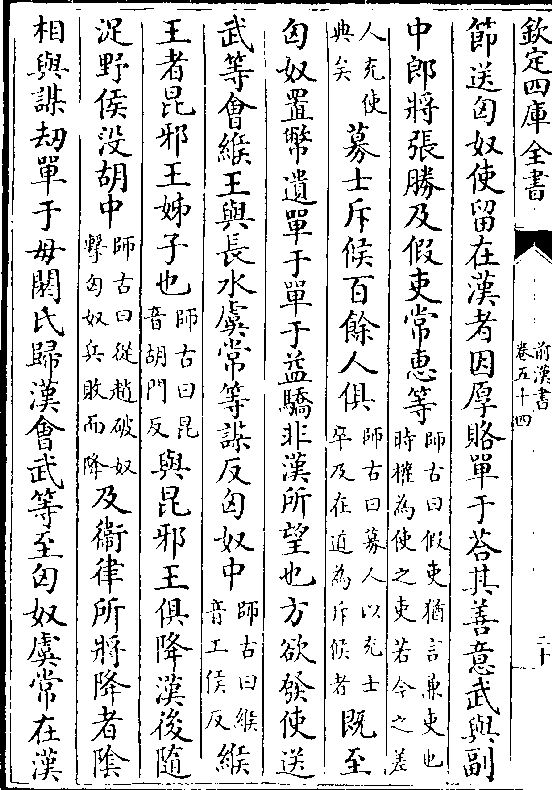 欽定四庫全書
前漢書
卷五十四
二十
節送匈奴使留在漢者因厚賂單于荅其善意武與副
中郎將張勝及假吏常惠等師古曰假吏猶言兼吏也時權為使之吏若今之差
人充使典矣募士斥候百餘人俱師古曰募人以充士卒及在道為斥候者既至
匈奴置幣遺單于單于益驕非漢所望也方欲發使送
武等會緱王與長水虞常等謀反匈奴中師古曰緱音工侯反緱
王者昆邪王姊子也師古曰昆音胡門反與昆邪王俱降漢後隨
浞野侯没胡中師古曰從趙破奴擊匈奴兵敗而降及衛律所將降者隂
相與謀劫單于母閼氏歸漢會武等至匈奴虞常在漢